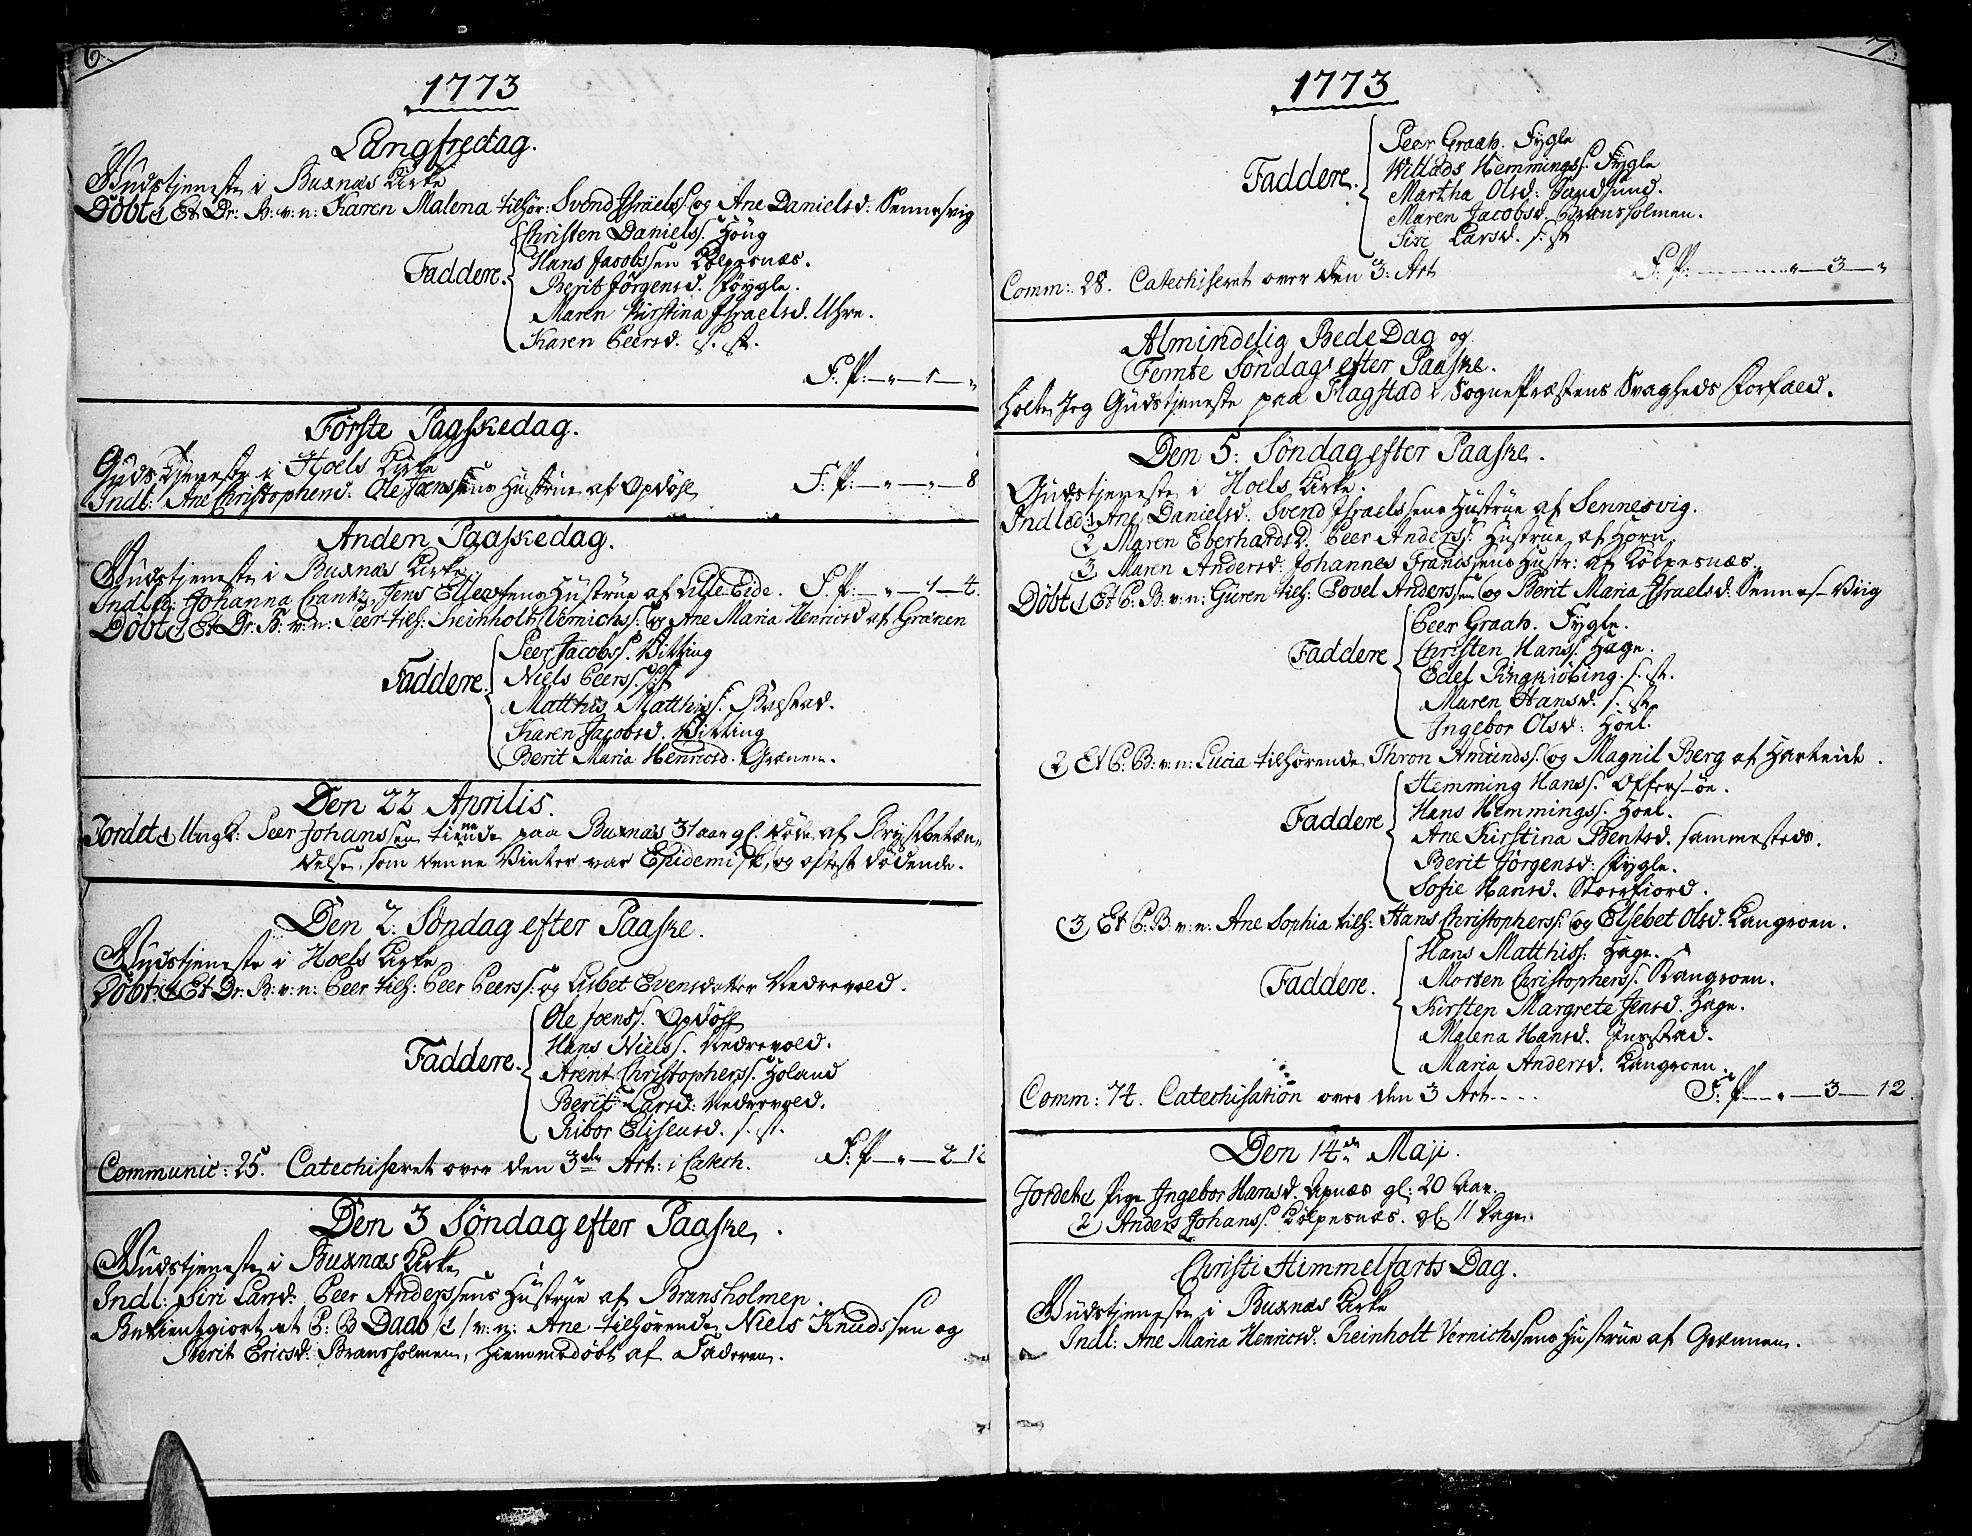 6.
1773
Langfredag.
Gudstjeneste i Buxnæs Kirke
Döbt 1 Et Dr: B: v: n: Karen Malena tilhör: Svend Jsraels: og Ane Danielsd: Sennesvig
Faddere.
Christen Daniels. Höug
Hans Jacobssen Kolpesnæs.
Berit Jörgensd. Föygle.
Maren Kirstina Jsraelsd. Uhre.
Karen Peersd. s. st.
F: P:—"—1—"
Förste Paaskedag.
Guds Tjeneste i Hoels Kirke
Indl: Ane Christophersd. Ole Joenssens Hustrue af Opdöhl F: P:—"—"—8
Anden Paaskedag.
Gudstjeneste i Buxnæs Kirke.
Indl: Johanna Crantz, Jens Ellessens Hustrue af Lille Eide. F: P:—"—1—4.
Döbt 1 Et Dr: B: v: n: Peer tilh: Reinholt Vernichs: og Ane Maria Henricsd af Grønen
Faddere.
Peer Jacobs. Vitting
Niels Peers. s: st
Matthis Matthis: Bolstad.
Karen Jacobsd. Vitting
Berit Maria Henricsd. Grænen.
Den 22 Aprilis.
Jordet 1 Ungk: Peer Johanssen tienende paa Buxnæs 31 aar gl. döde af Brystbetæn-
delse, som denne Vinter var Epidemisk, og oftest dödende.
Den 2. Söndag efter Paaske.
Gudstjeneste i Hoels Kirke
Döbt 1 Et Dr: B: v: n: Peer tilh: Peer Peers: og Lisbet Evensdatter Nedrevold.
Faddere.
Ole Joens. Opdöhl
Hans Niels. Nedrevold.
Arent Christophers. Holand
Berit Larsd: Nedrevold.
Ribor Elisensd. s. st.
Communic: 25. Catechiseret over den 3de Art: i Catech. F: P—"—2—12
Den 3 Söndag efter Paaske.
Gudstjeneste i Buxnæs Kirke
Indl: Siri Larsd. Peer Anderssens Hustrue af Bransholmen.
Bekientgiort at P: B Daab /1/ v: n: Ane tilhörende Niels Knudssen og
Berit Ericsd: Bransholmen, hiemmedöbt af Faderen.
7.
1773
Faddere.
Peer Graah. Fygle
Willads Hemmings: Fygle
Martha Olsd: Sandsund.
Maren Jacobsd. Bransholmen.
Siri Larsd. s. st
F: P:—"—3—"
Comm: 28. Catechiseret over den 3: Art
Almindelig Bede Dag og
Femte Söndag efter Paaske.
holte Jeg Gudstjeneste paa Flagstad i Sogne Præstens Svagheds Forfald.
Den 5: Söndag efter Paaske.
Gudstjeneste i Hoels Kirke.
Indled: 1 Ane Danielsd. Svend Jsraelssens Hustrue af Sennesvig.
2 Maren Eberhardsd. Peer Anders: Hustrue af Horn
3 Maren Andersd. Johannes Frandssens Hustr: af Kolpesnæs.
Döbt 1 Et P: B: v: n: Guren tilh: Povel Anderssen og Berit Maria Jsraelsd: Sennes-Viig
Faddere
Peer Graah. Fygle.
Christen Hans: Hage.
Edel Ringkiöbing. s. st.
Maren Hansd. s. st
Ingebor Olsd: Hoel.
2 Et P: B: v: n: Lucia tilhörende Thron Amunds: og Magnil Berg af Harteide.
Faddere
Hemming Hans. Offersöe.
Hans Hemmings. Hoel.
Ane Kirstina Bentsd. sammesteds.
Berit Jörgensd: Fygle.
Sofie Hansd. Storfiord.
3 Et P: B: v: n: Ane Sophia tilh: Hans Christophers: og Elsebet Olsd. Langroen.
Faddere.
Hans Matthis: Hage.
Morten Christophers. Langroen.
Kirsten Margrete Jensd. Hage.
Malena Hansd. Jnestad.
Maria Andersd. Langroen.
Comm: 74. Catechisation over den 3 Art.... F: P—"—3—12.
Den 14de Maji.
Jordet 1 Pige Ingebor Hansd. Apnæs gl: 20 Aar.
2 Anders Johans. Kolpesnæs. gl 11 Dage.
Christi Himmelfarts Dag.
Gudstjeneste i Buxnæs Kirke
Indl: Ane Maria Henricsd. Reinholt Vernichssens Hustrue af Grænnen.